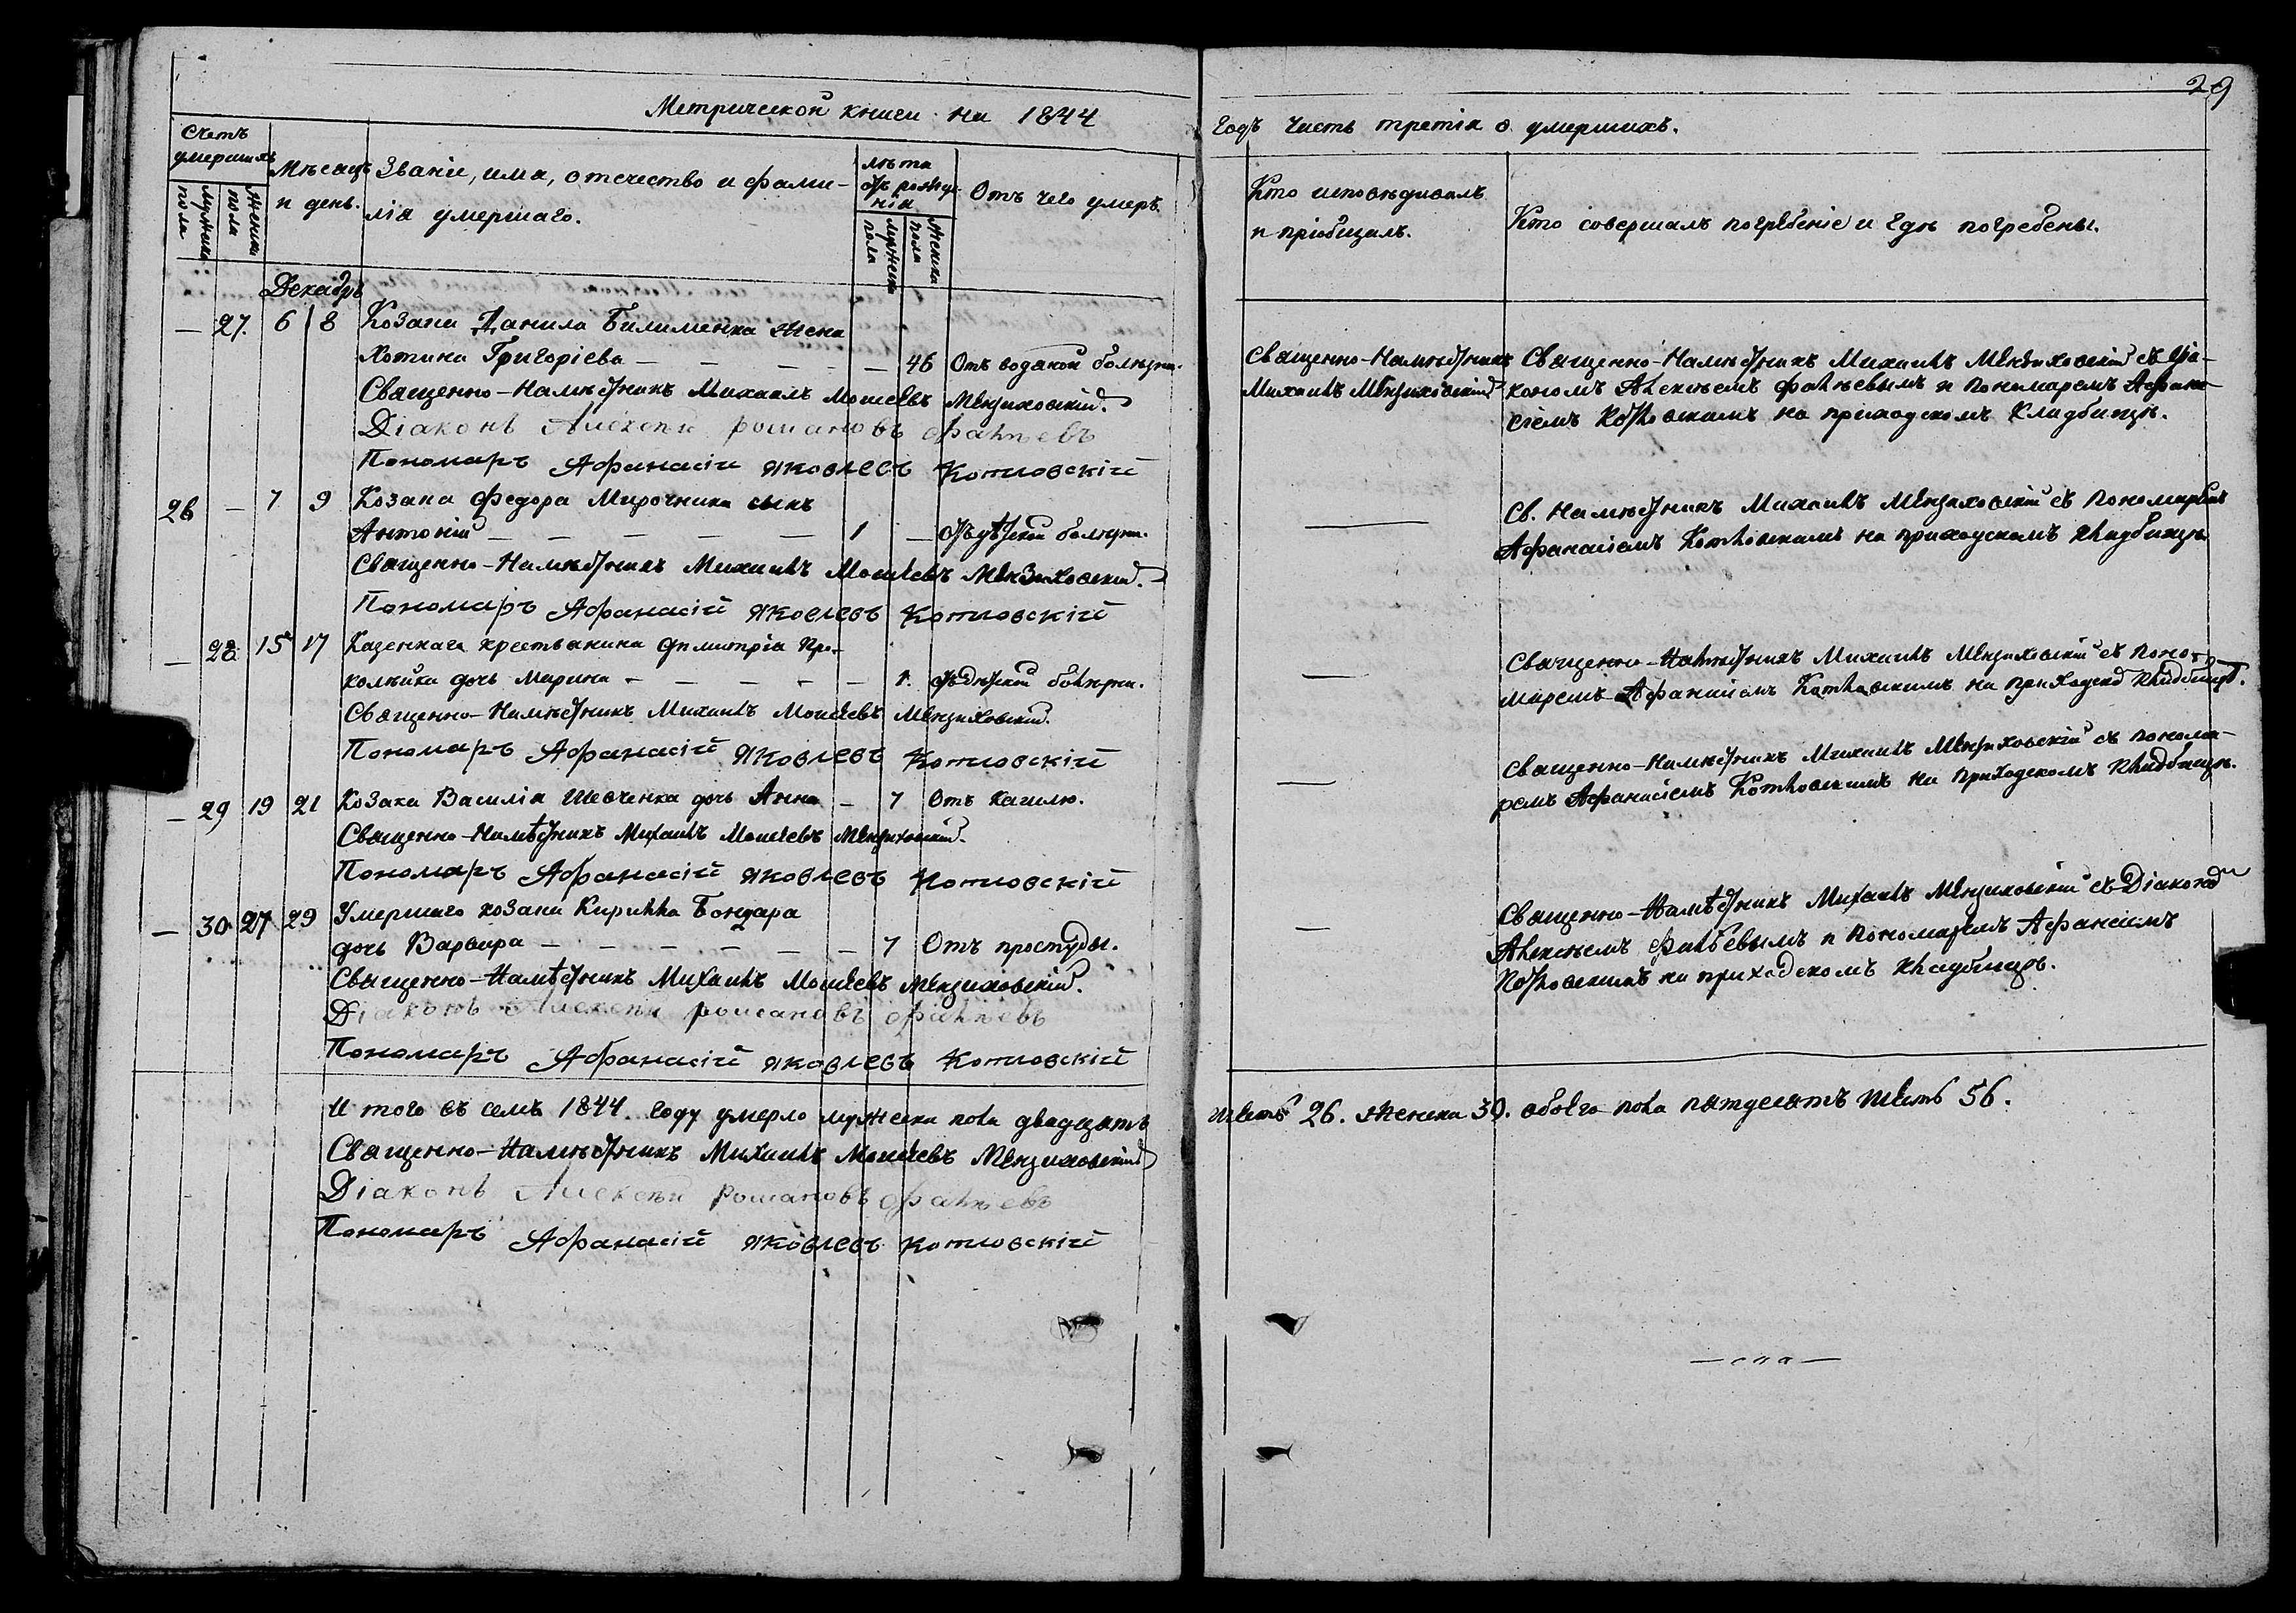 29
Метрической книги на 1844
Счетъ умершихъ
Мужеска пола
Женска пола
Мѣсяцъ и день.
Званіе, имя, отчество и фами-
лія умершаго.
лѣта отъ рожде-
нія
Мужеска пола
Женска пола
Отъ чего умеръ.
Декабрь
— 27. 6 8 Козака Данила Билименка жена
Хотина Григоріева — — — — 46 Отъ водяной болѣзни.
Священно-Намѣстникъ Михаилъ Моисеевъ Мензиховскій.
Діаконъ Алексѣй романовъ фалѣевъ
Пономарь Афанасій яковлевъ Котловскій
26 — 7 9 Козака Федора Мирочника сынъ
Антоній — — — — — 1 — Отъ дѣтской болѣзни.
Священно-Намѣстникъ Михаилъ Моисеевъ Мензиховскій.
Пономарь Афанасій яковлевъ Котловскій
— 28 15 17 Казеннаго крестьянина Димитрія Про-
копейка дочь Марина — — — — — 1. Отъ дѣтской болѣзни.
Священно-Намѣстникъ Михаилъ Моисеевъ Мензиховскій.
Пономарь Афанасій яковлевъ Котловскій
— 29 19 21 Козака Василія Шевченка дочь Анна — 7 Отъ кашлю.
Священно-Намѣстникъ Михаилъ Моисеевъ Мензиховскій.
Пономарь Афанасій яковлевъ Котловскій
— 30 27 29 Умершаго козака Кирилла Бондара
дочь Варвара — — — — — — 7 Отъ простуды.
Священно-Намѣстникъ Михаилъ Моисеевъ Мензиховскій.
Діаконъ Алексѣй романовъ фалѣевъ
Пономарь Афанасій яковлевъ Котловскій
И того въ семъ 1844. году умерло мужеска пола двадцать
Священно-Намѣстникъ Михаилъ Моисеевъ Мензиховскій
Діаконъ Алексѣй романовъ фалѣевъ
Пономарь Афанасій яковлевъ котловскій
Годъ Часть третія о умершихъ.
Кто исповѣдивалъ
и пріобщалъ.
Кто совершалъ погребеніе и гдѣ погребены.
Священно-Намѣстникъ
Михаилъ Мензиховскій
Священно-Намѣстникъ Михаилъ Мензиховскій съ діа-
кономъ Алексѣемъ фалѣевымъ и пономаремъ Афана-
сіемъ Котловскимъ на приходскомъ кладбищѣ.
— Св. Намѣстникъ Михаилъ Мензиховскій съ Пономаремъ
Афанасіемъ Котловскимъ на приходскомъ кладбищѣ
— Священно-Намѣстникъ Михаилъ Мензиховскій съ поно-
маремъ Афанасіемъ Котловскимъ на приходско кладбищѣ.
— Священно-Намѣстникъ Михаилъ Мензиховскій съ понома-
ремъ Афанасіемъ Котловскимъ на приходскомъ кладбищѣ.
— Священно-Намѣстникъ Михаилъ Мензиховскій съ Діаконом
Алексѣемъ Фалѣевымъ и пономаремъ Афансіемъ
Котловскимъ на приходскомъ кладбищѣ.
шесть 26. женска 30. обоего пола пятдесятъ шесть 56.